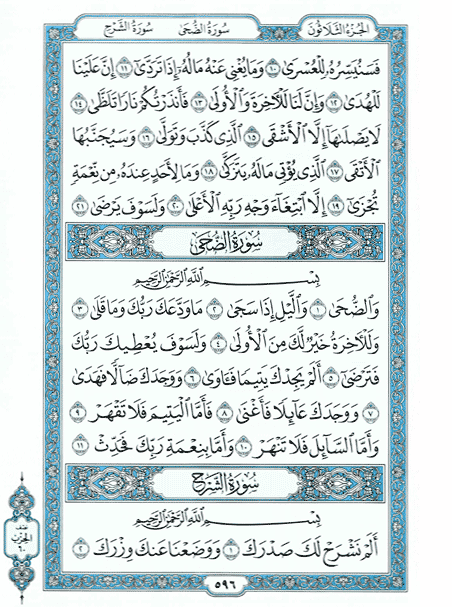 الجزء الثلاثون سورة الضحى سورة الشرح
فَسَنُيَسِّرُهُۥ لِلْعُسْرَىٰ ١٠ وَمَا يُغْنِى عَنْهُ مَالُهُۥٓ إِذَا تَرَدَّىٰٓ ١١ إِنَّ عَلَيْنَا
لَلْهُدَىٰ ١٢ وَإِنَّ لَنَا لَلْءَاخِرَةَ وَٱلْأُولَىٰ ١٣ فَأَنذَرْتُكُمْ نَارًا تَلَظَّىٰ ١٤
لَا يَصْلَىٰهَآ إِلَّا ٱلْأَشْقَى ١٥ ٱلَّذِى كَذَّبَ وَتَوَلَّىٰ ١٦ وَسَيُجَنَّبُهَا
ٱلْأَتْقَى ١٧ ٱلَّذِى يُؤْتِى مَالَهُۥ يَتَزَكَّىٰ ١٨ وَمَا لِأَحَدٍ عِندَهُۥ مِن نِّعْمَةٍ
تُجْزَىٰٓ ١٩ إِلَّا ٱبْتِغَآءَ وَجْهِ رَبِّهِ ٱلْأَعْلَىٰ ٢٠ وَلَسَوْفَ يَرْضَىٰ ٢١
سُورَةُ الضُّحَىٰ
بِسْمِ ٱللَّهِ ٱلرَّحْمَٰنِ ٱلرَّحِيمِ
وَٱلضُّحَىٰ ١ وَٱلَّيْلِ إِذَا سَجَىٰ ٢ مَا وَدَّعَكَ رَبُّكَ وَمَا قَلَىٰ ٣
وَلَلْءَاخِرَةُ خَيْرٌ لَّكَ مِنَ ٱلْأُولَىٰ ٤ وَلَسَوْفَ يُعْطِيكَ رَبُّكَ
فَتَرْضَىٰٓ ٥ أَلَمْ يَجِدْكَ يَتِيمًا فَـَٔاوَىٰ ٦ وَوَجَدَكَ ضَآلًّا فَهَدَىٰ
٧ وَوَجَدَكَ عَآئِلًا فَأَغْنَىٰ ٨ فَأَمَّا ٱلْيَتِيمَ فَلَا تَقْهَرْ ٩
وَأَمَّا ٱلسَّآئِلَ فَلَا تَنْهَرْ ١٠ وَأَمَّا بِنِعْمَةِ رَبِّكَ فَحَدِّثْ ١١
سُورَةُ الشَّرْحِ
بِسْمِ ٱللَّهِ ٱلرَّحْمَٰنِ ٱلرَّحِيمِ
أَلَمْ نَشْرَحْ لَكَ صَدْرَكَ ١ وَوَضَعْنَا عَنكَ وِزْرَكَ ٢
نصف
الحزب
٦٠
٥٩٦